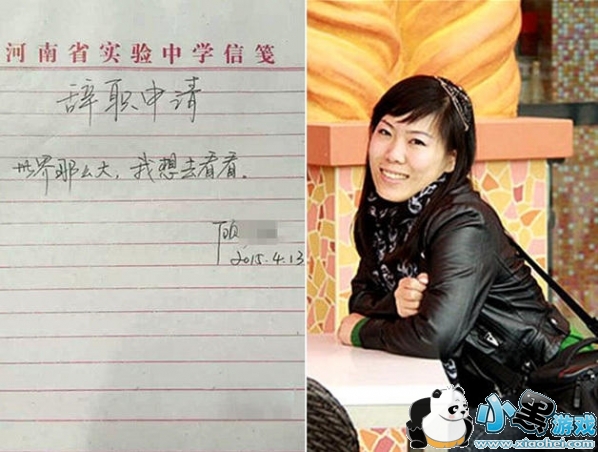 河南省实验中学信笺
辞职申请
世界那么大，我想去看看。
顾
2015.4.13
小黑游戏
www.xiaohei.com